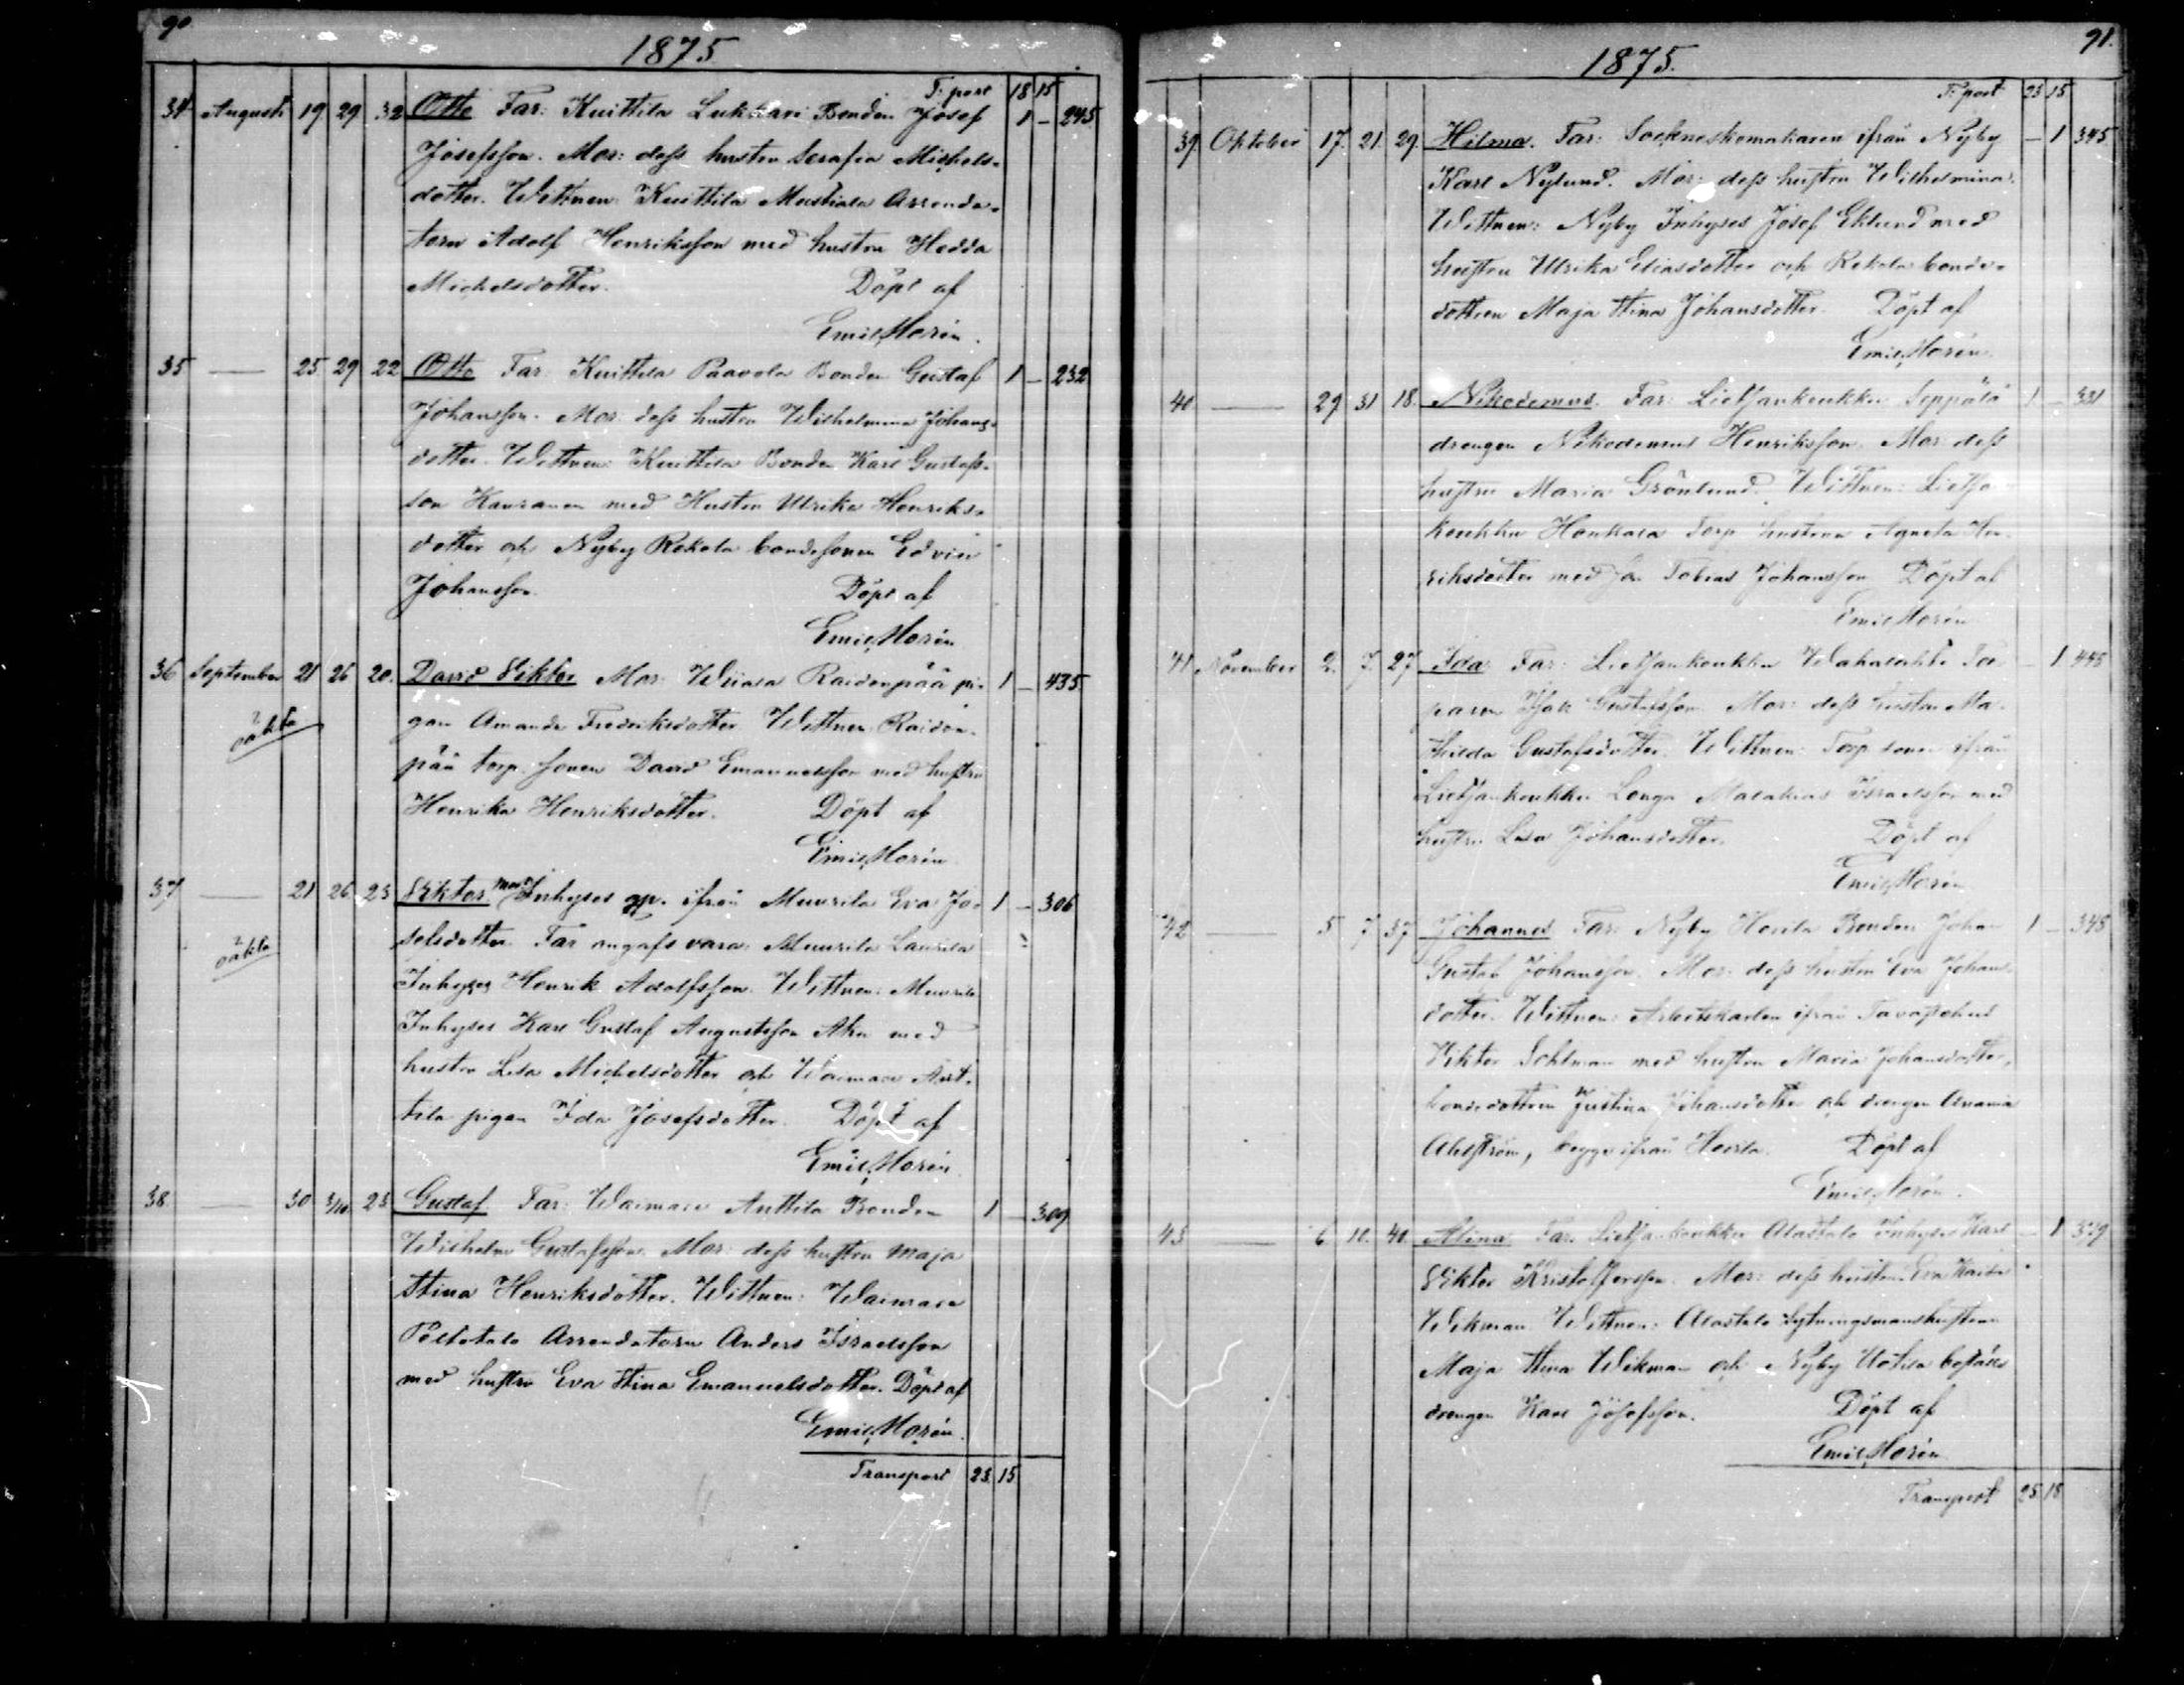 90
1875
T. port 18 15
34 Augusti 19 29 32 Otto Far: Knittila Lukkari Bonden Josef 1 – 245
Josefsson. Mor: dess hustru Serafia Michels-
dotter. Wittnen: Knittila Mustiala Arrenda-
torn Adolf Henriksson med hustru Hedda
Michelsdotter. Döpt af
Emil Morén.
35 — 25 29 22 Otto Far: Knittila Paavola Bonden Gustaf 1 – 232
Johansson. Mor: dess hustru Wilhelmina Johans-
dotter. Wittnen: Knittila Bonden Karl Gustafs-
son Kauranen med Hustru Ulrika Henriks-
dotter och Nyby Rekola bondesonen Edvin
Johansson. Döpt af
Emil Morén
36 September 21 26 20. David Viktor Mor: Raidenpää pi- 1 – 435.
oäkta
gan Amanda Fredriksdotter Wittnen Raiden-
pää torp. sonen David Emanuelsson med hustru
Henrika Henriksdotter. Döpt af
Emil Morén
37 — 21 26 23 Viktor. Mor: Inhyses qp. ifrån Muurila Eva Jo- 1 – 306
oäkta
selsdotter. Far angafs vara: Muurila Laurila
Inhyses Henrik Adolfsson. Wittnen: Muurila
Inhyses Karl Gustaf Augustsson Ahn med
hustru Lisa Michelsdotter och Waimare Ant-
tila pigan Ida Josefsdotter. Döpt af
Emil Morén.
38. — 30 3/10 23 Gustaf. Far: Waimare Anttila Bonden 1 – 309
Wilhelm Gustafsson. Mor: dess hustru Maja
Stina Henriksdotter. Wittnen: Waimare
Peltotalo Arrendatorn Anders Israelsson
med hustru Eva Stina Emanuelsdotter. Döpt af
Emil Morén.
Transport 23. 15
91.
1875.
T. port 23 15
39 Oktober 17. 21. 29. Hilma. Far: Sockneskomakaren ifrån Nyby – 1 345
Karl Nylund. Mor: dess hustru Wilhelmina.
Wittnen: Nyby Inhyses Josef Eklund med
hustru Ulrika Eliasdotter och Rekola bonde-
dottren Maja Stina Johansdotter. Döpt af
Emil Morén.
40 — 29 31 18. Nikodemus. Far: Lietsankoukku Seppälä 1 – 331
drengen Nikodemus Henriksson. Mor: dess
hustru Maria Grönlund. Wittnen: Lietsa-
koukku Honkala Torp hustrun Agneta Hen-
riksdotter med son Tobias Johansson Döpt af
Emil Morén
41 November 2. 7. 27 Ida. Far: Lietsankoukku Wahalahti Tor- 1 445
paren Isak Gustafsson. Mor: dess hustru Ma-
thilda Gustafsdotter. Wittnen: Torp. sonen ifrån
Lietsankoukku Longa Malakias Israelsson med
hustru Lisa Johansdotter. Döpt af
Emil Morén
42 — 5 7. 37 Johannes Far: Nyby Bonden Johan 1 – 345
Gustaf Johansson. Mor: dess hustru Eva Johans-
dotter. Wittnen: Arbetskarlen ifrån Tavastehus
Viktor Sohlman med hustru Maria Johansdotter,
bondedottren Justina Johansdotter och drengen Anania
Ahlström, begge ifrån Döpt af
Emil Morén.
43 — 6 10. 40. Alina Far: Lietsankoukku Alastalo Inhyses Karl – 1 329
Viktor Kristoffersson. Mor: dess hustru Eva Kaisa
Wikman Wittnen: Alastalo Sytningsmanshustrun
Maja Stina Wikman och Nyby Uotila
drengen Karl Josefsson. Döpt af
Emil Morén
Transport 25 18